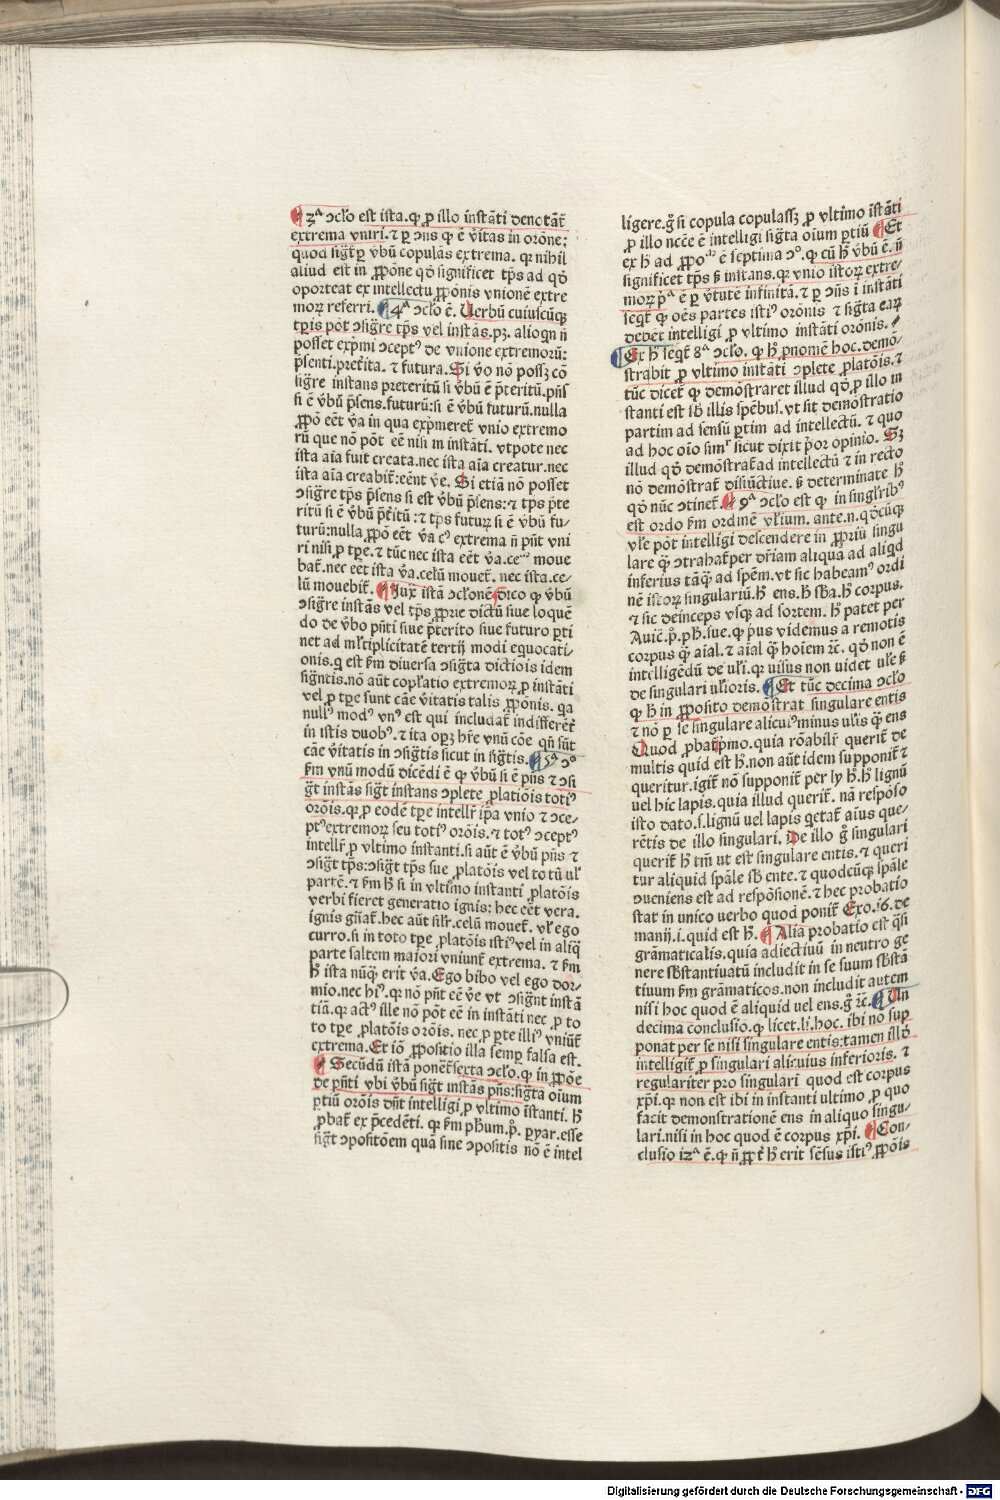 ¶ 3ᴬ ↄcl̄o est ista. ꝙ ꝑ illo instāti denotāt̄
extrema vniri. ⁊ ꝑ ↄn̄s ꝙ ē v̄itas in orōne:
quod sigt̄ꝑ v̄bū copulās extrema. qꝛ nihil
aliud est in ꝓpōne qd̄ significet tp̄s ad qd̄
oporteat ex intellectu ꝓpōnis vnionē extre
moꝝ referri. ¶ 4ᴬ ↄcl̄o ē. Uerbū cuiuscūqꝫ
tꝑis pōt ↄsigr̄e tp̄s vel instās. pꝫ. alioqn n̄
posset exp̄mi ↄceptꝰ de vnione extremorū:
p̄senti. pret̄ita. ⁊ futura. Si v̄o nō possꝫ cō
sigr̄e instans preteritū si v̄bū ē p̄teritū. pn̄s
si ē v̄bū p̄sens. futurū: si ē v̄bū futurū. nulla
ꝓpō eēt v̄a in qua exp̄meret̄ vnio extremo
rū que nō pōt eē nisi in instāti. vtpote nec
ista aīa fuit creata. nec ista aīa creatur. nec
ista aīa creabit̄: eēnt v̄e. Si etiā nō posset
ↄsigr̄e tp̄s p̄sens si est v̄bū p̄sens: ⁊ tp̄s p̄te
ritū si ē v̄bū p̄t̄itū: ⁊ tp̄s futuꝝ si ē v̄bū fu-
turū: nulla ꝓpō eēt v̄a cꝰ extrema n̄ pn̄t vni
ri nisi ꝑ tꝑe. ⁊ tūc nec ista eēt v̄a. ce moue
bat̄. nec eēt ista v̄a. celū mouet̄. nec ista. ce-
lū mouebit̄. ¶ Jux istā ↄcl̄onē dico ꝙ v̄bū
ↄsigr̄e instās vel tp̄s ꝓprie dictū siue loquē
do de v̄bo pn̄ti siue p̄terito siue futuro ꝑti
net ad ml̄tiplicitatē tertij modi equocati-
onis. q̄ est fm̄ diuersa ↄsiḡta dictiōis idem
siḡntis. nō aūt copl̄atio extremoꝝ ꝑ instāti
vel ꝑ tꝑe sunt cāe v̄itatis talis ꝓpōnis. qa
nullꝰ modꝰ vnꝰ est qui includat̄ indifferēt̄
in istis duobꝰ. ⁊ ita opꝫ hr̄e vnū cōe qn̄ sūt
cāe v̄itatis in ↄsiḡtis sicut in siḡtis. ¶ 5ᴬ ↄᵒ
fm̄ vnū modū dicēdi ē ꝙ v̄bū si ē pn̄s ⁊ ↄsi
ḡt instās siḡt instans ↄplete ꝓlatiōis totiꝰ
orōis. ꝙ ꝑ eodē tꝑe intellr̄ ip̄a vnio ⁊ ↄce-
ptꝰ extremoꝝ seu totiꝰ orōis. ⁊ totꝰ ↄceptꝰ
intellr̄ ꝑ vltimo instanti. si aūt ē v̄bū pn̄s ⁊
ↄsiḡt tp̄s: ↄsiḡt tp̄s sue ꝓlatōis vel to tū ul̄
partē. ⁊ fm̄ h̄ si in vltimo instanti ꝓlatōis
verbi fieret generatio ignis: hec eēt vera.
ignis gn̄at̄. hec aūt silr̄. celū mouet̄. vl̄ ego
curro. si in toto tꝑe ꝓlatōis istiꝰ vel in aliq̄
parte saltem maiori vniunt̄ extrema. ⁊ fm̄
h̄ ista nūq̄ erit v̄a. Ego bibo vel ego dor-
mio. nec hiꝰ. qꝛ nō pn̄t eē v̄e vt ↄsign̄t instā
tiā. qꝛ actꝰ ille nō pōt eē in instāti nec ꝑ to
to tꝑe ꝓlatōis orōis. nec ꝑ ꝑte illiꝰ vniūt̄
extrema. Et iō ꝓpositio illa semꝑ falsa est.
¶ Secūdū istā ponēt̄ sexta ↄcl̄o. ꝙ in ꝓpōe
de pn̄ti vbi v̄bū siḡt instās pn̄s: siḡta oīum
ꝑtiū orōis dn̄t intelligi ꝑ vltimo īstanti. h̄
ꝓbat̄ ex p̄cedēti. ꝙ fm̄ ph̄um. p̄. ꝑyar. esse
siḡt ↄpositōem quā sine ↄpositis nō ē intel
ligere. g̊ si copula copulassꝫ ꝑ vltimo īstāti
ꝑ illo ncc̄e ē intelligi siḡta oīum ꝑtiū ¶ Et
ex h̄ ad ꝓpoᵐ ē septima ↄᵒ. ꝙ cū h̄ v̄bū ē. n̄
significet tp̄s s̄ instans. qꝛ vnio istoꝝ extre-
moꝝ pᴬ ē ꝑ v̄tutē infinitā. ⁊ ꝑ ↄn̄s ī instāti
seqt̄ ꝙ oēs partes istiꝰ orōnis ⁊ siḡta eaꝝ
debēt intelligi ꝑ vltimo instāti orōnis. ¶
Ex h̄ seqt̄ 8ᴬ ↄcl̄o. ꝙ h̄ ꝓnomē hoc. demō-
strabit ꝑ vltimo instāti ↄplete ꝓlatōis. ⁊
tūc dicet̄ ꝙ demōstraret illud qd̄ ꝑ illo in
stanti est sb̄ illis spēbus. vt sit demōstratio
partim ad sensū ꝑtim ad intellectū. ⁊ quo
ad hoc oīo simr̄ sicut dixit p̄or opinio. Sꝫ
illud qd̄ demōstrat̄ ad intellectū ⁊ in recto
nō demōstrat̄ disiūctiue. s̄ determinate h̄
qd̄ nūc ↄtinet̄. ¶ 9ᴬ ↄcl̄o est ꝙ in singl̄ribꝰ
est ordo fm̄ ordinē vl̄ium. ante. n. qd̄cūqꝫ
vl̄e pōt intelligi descendere in ꝓpriū singu
lare q̄ ↄtrahat̄ ꝑ dr̄iam aliqua ad aliqd
inferius tāq̄ ad spēm. vt sic habeamꝰ ordi
nē istoꝝ singulariū. h̄ ens. h̄ sb̄a. h̄ corpus.
⁊ sic deinceps vsqꝫ ad sortem. h̄ patet per
Auic̄. p̄. ph̄. iue. ꝙ p̄us videmus a remotis
corpus q̄ aīal. ⁊ aīal q̄ hoīem ⁊c̄. qd̄ non ē
intelligēdū de vl̄i. qꝛ uisus non uidet ul̄e s̄
de singulari ul̄ioris. ¶ Et tūc decima ↄcl̄o
ꝙ h̄ in ꝓposito demōstrat singulare entis
⁊ nō ꝑ se singulare alicuiꝰ minus ul̄is q̄ ens
Quod ꝓbat̄ p̄mo. quia rōabilr̄ querit̄ de
multis quid est h̄. non aūt idem supponit̄ ⁊
queritur. igit̄ nō supponit̄ per ly h̄. h̄ lignū
uel hic lapis. quia illud querit̄. nā respōso
isto dato. s. lignū uel lapis q̄etat̄ aīus que-
rētis de illo singulari. De illo g̊ singulari
querit̄ h̄ tm̄ ut est singulare entis. ⁊ queri
tur aliquid spāle sb̄ ente. ⁊ quodcūqꝫ spāle
ↄueniens est ad respōsionē. ⁊ hec probatio
stat in unico uerbo quod ponit̄ Exo. i6. de
manij. i. quid est h̄. ¶ Alia probatio est q̄si
grāmaticalis. quia adiectiuū in neutro ge
nere sb̄stantiuatū includit in se suum sb̄stā
tiuum fm̄ grāmaticos. non includit autem
nisi hoc quod ē aliquid uel ens. g̊ ⁊c̄. ¶ Un
decima conclusio. ꝙ licet. li. hoc. ibi nō sup
ponat per se nisi singulare entis: tamen illd̄
intelligit̄ ꝑ singulari alicuius inferioris. ⁊
regulariter pro singulari quod est corpus
xp̄i. qꝛ non est ibi in instanti ultimo ꝑ quo
facit demonstrationē ens in aliquo singu-
lari. nisi in hoc quod ē corpus xp̄i. ¶ Con-
clusio i2ᴬ ē. ꝙ n̄ ꝓpt̄ h̄ erit sēsus istiꝰ ꝓpōis
Digitalisierung gefördert durch die Deutsche Forschungsgemeinschaft - DFG